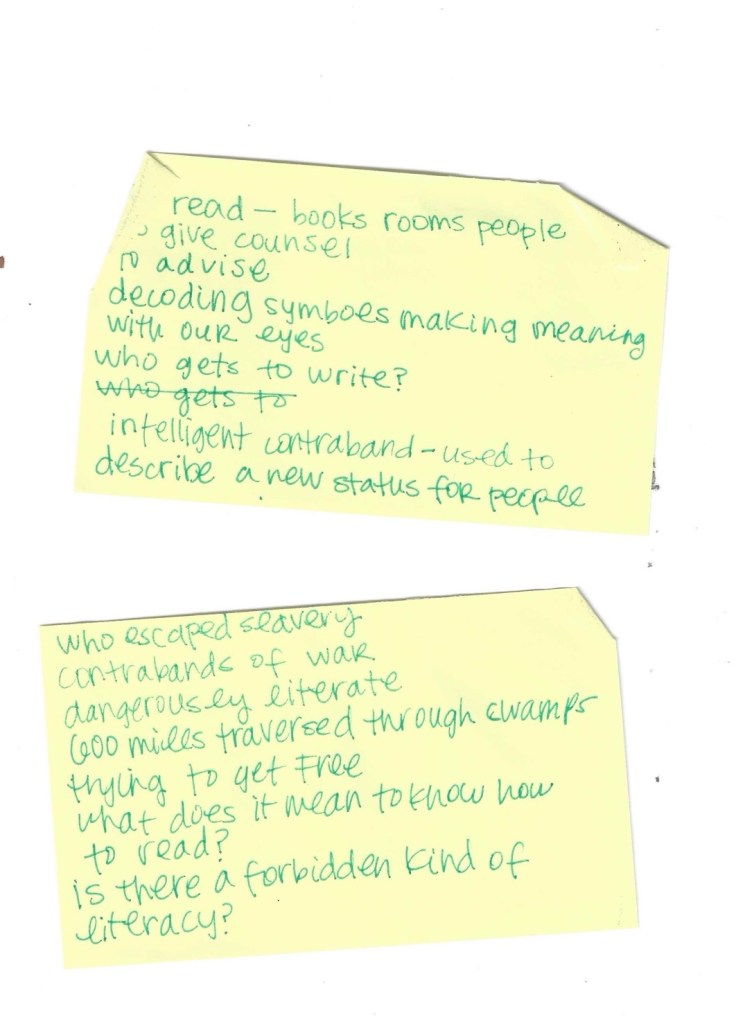 read — books rooms people
give counsel
to advise
decoding symboes making meaning
with our eyes
who gets to write?
who gets to
intelligent contraband - used to
describe a new status for people
who escaped slavery
contrabands of war
dangerously literate
600 miles traversed through swamps
trying to get free
what does it mean to know how
to read?
is there a forbidden kind of
literacy?